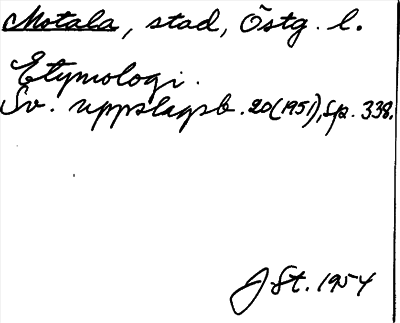 Motala, stad, Östg. l.
Etymologi.
Sv. uppslagsb. 20(1951), sp. 338.
J.St. 1954